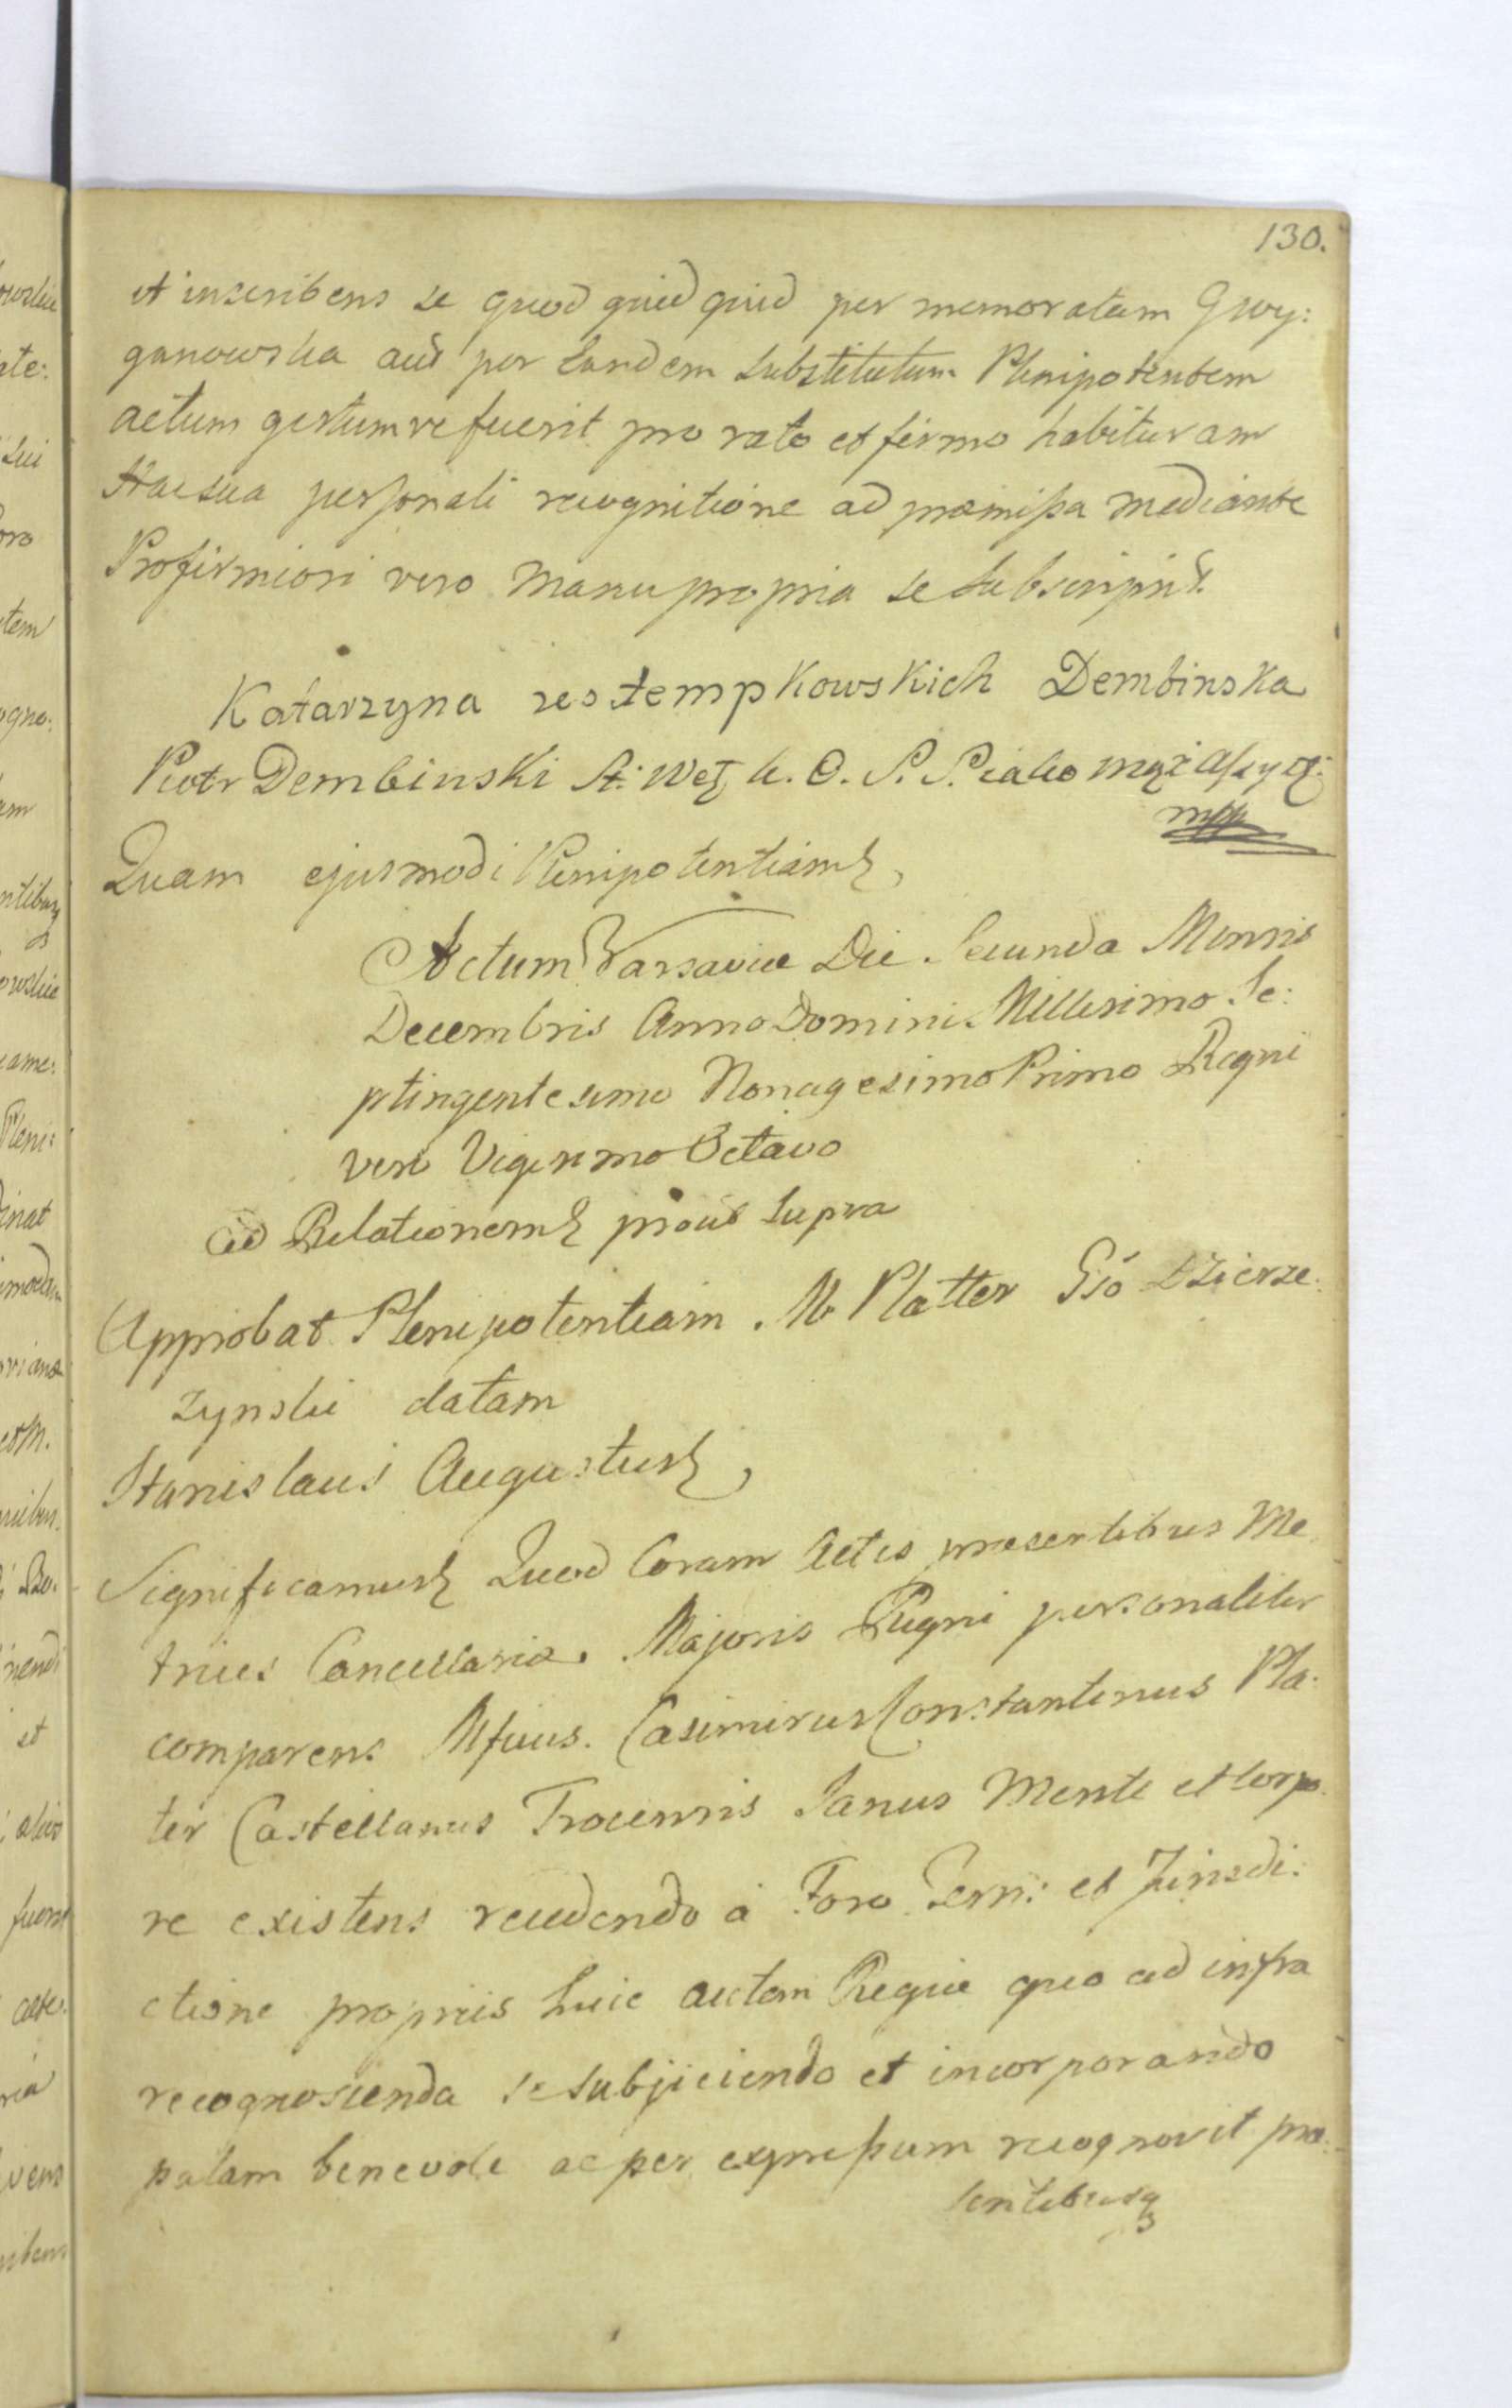 130.
et inscribens se quod quid quid per memoratam Gwy:
ganowska aut per eandem substitutum Plenipotentem
actum gestumve fuerit pro rato et firmo habituram
Hac sua personali recognitione ad præmissa mediante
Pro firmiori vero Manu propria se subscripsit.
Katarzyna zestempkowskich Dembinska
Piotr Dembinski St: Wol. k. O. S. S. iako mąż Assyst:
mpp
Quam ejusmodi Plenipotentiam
Actum Varsaviæ Die Secunda Mensis
Decembris Anno Domini Millesimo Se:
ptingentesimo Nonagesimo Primo Regni
vero Vigesimo Octavo
ad Relationem prout supra
Approbat Plenipotentiam. M Platter Gső Dzierze:
zynski datam
Stanislaus Augustus
Significamus Quod Coram Actis præsentibus Me
trices Cancellariæ. Majoris Regni personaliter
comparens Mfcus. Casimirus Constantinus Pla:
ter Castellanus Trocensis Sanus Mente et Corpo
re existens recedendo à Foro Terr: et Jurisdi:
ctione propriis huic autem Regiæ quo ad infra
recognoscenda se subjiciendo et incorporando
palam benevole ac per expressum recognovit præ:
sentibusq